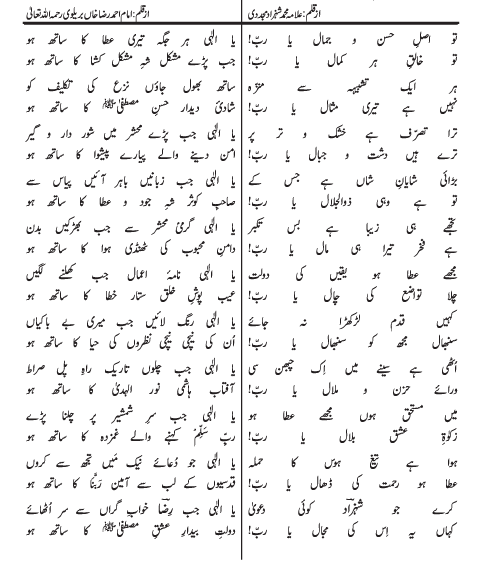 از قلم: علامہ محمد شہزاد مجددی
تو اصلِ حسن و جمال یا ربّ!
تو خالقِ ہر کمال یا ربّ!
ہر ایک تشبیہہ سے منزّہ
نہیں ہے تیری مثال یا ربّ!
ترا تصرّف ہے خشک و تر پر
ترے ہیں دشت و جبال یا ربّ!
بڑائی شایانِ شاں ہے جس کے
تو ہے وہی ذوالجلال یا ربّ!
تجھے ہی زیبا ہے بس تکبر
ہے فخر تیرا ہی مال یا ربّ!
مجھے عطا ہو یقیں کی دولت
چلا تواضع کی چال یا ربّ!
کہیں قدم لڑکھڑا نہ جائے
سنبھال مجھ کو سنبھال یا ربّ!
اُٹھی ہے سینے میں اِک چبھن سی
ورائے حزن و ملال یا ربّ!
میں مستحق ہوں مجھے عطا ہو
زکوٰۃِ عشقِ بلال یا ربّ!
ہوا ہے تیغِ ہوس کا حملہ
عطا ہو رحمت کی ڈھال یا ربّ!
کرے جو شہزاد کوئی دعویٰ
کہاں یہ اِس کی مجال یا ربّ!
از قلم: امام احمد رضا خاں بریلوی رحمۃ اللہ تعالیٰ
یا الٰہی ہر جگہ تیری عطا کا ساتھ ہو
جب پڑے مشکل شہِ مشکل کشا کا ساتھ ہو
یا الٰہی بھول جاؤں نزع کی تکلیف کو
شادیٔ دیدارِ حسنِ مصطفیٰ ﷺ کا ساتھ ہو
یا الٰہی جب پڑے محشر میں شورِ دار و گیر
امن دینے والے پیارے پیشوا کا ساتھ ہو
یا الٰہی جب زبانیں باہر آئیں پیاس سے
صاحبِ کوثر شہِ جود و عطا کا ساتھ ہو
یا الٰہی گرمیٔ محشر سے جب بھڑکیں بدن
دامنِ محبوب کی ٹھنڈی ہوا کا ساتھ ہو
یا الٰہی نامۂ اعمال جب کھلنے لگیں
عیب پوشِ خلق ستارِ خطا کا ساتھ ہو
یا الٰہی رنگ لائیں جب میری بے باکیاں
اُن کی نیچی نیچی نظروں کی حیا کا ساتھ ہو
یا الٰہی جب چلوں تاریک راہِ پل صراط
آفتابِ ہاشمی نور الہدیٰ کا ساتھ ہو
یا الٰہی جب سرِ شمشیر پر چلنا پڑے
ربِّ سَلِّمْ کہنے والے غمزدہ کا ساتھ ہو
یا الٰہی جو دُعائے نیک میں تجھ سے کروں
قدسیوں کے لب سے آمیں رَبَّنَا کا ساتھ ہو
یا الٰہی جب رضاؔ خوابِ گراں سے سر اُٹھائے
دولتِ بیدارِ عشقِ مصطفیٰ ﷺ کا ساتھ ہو